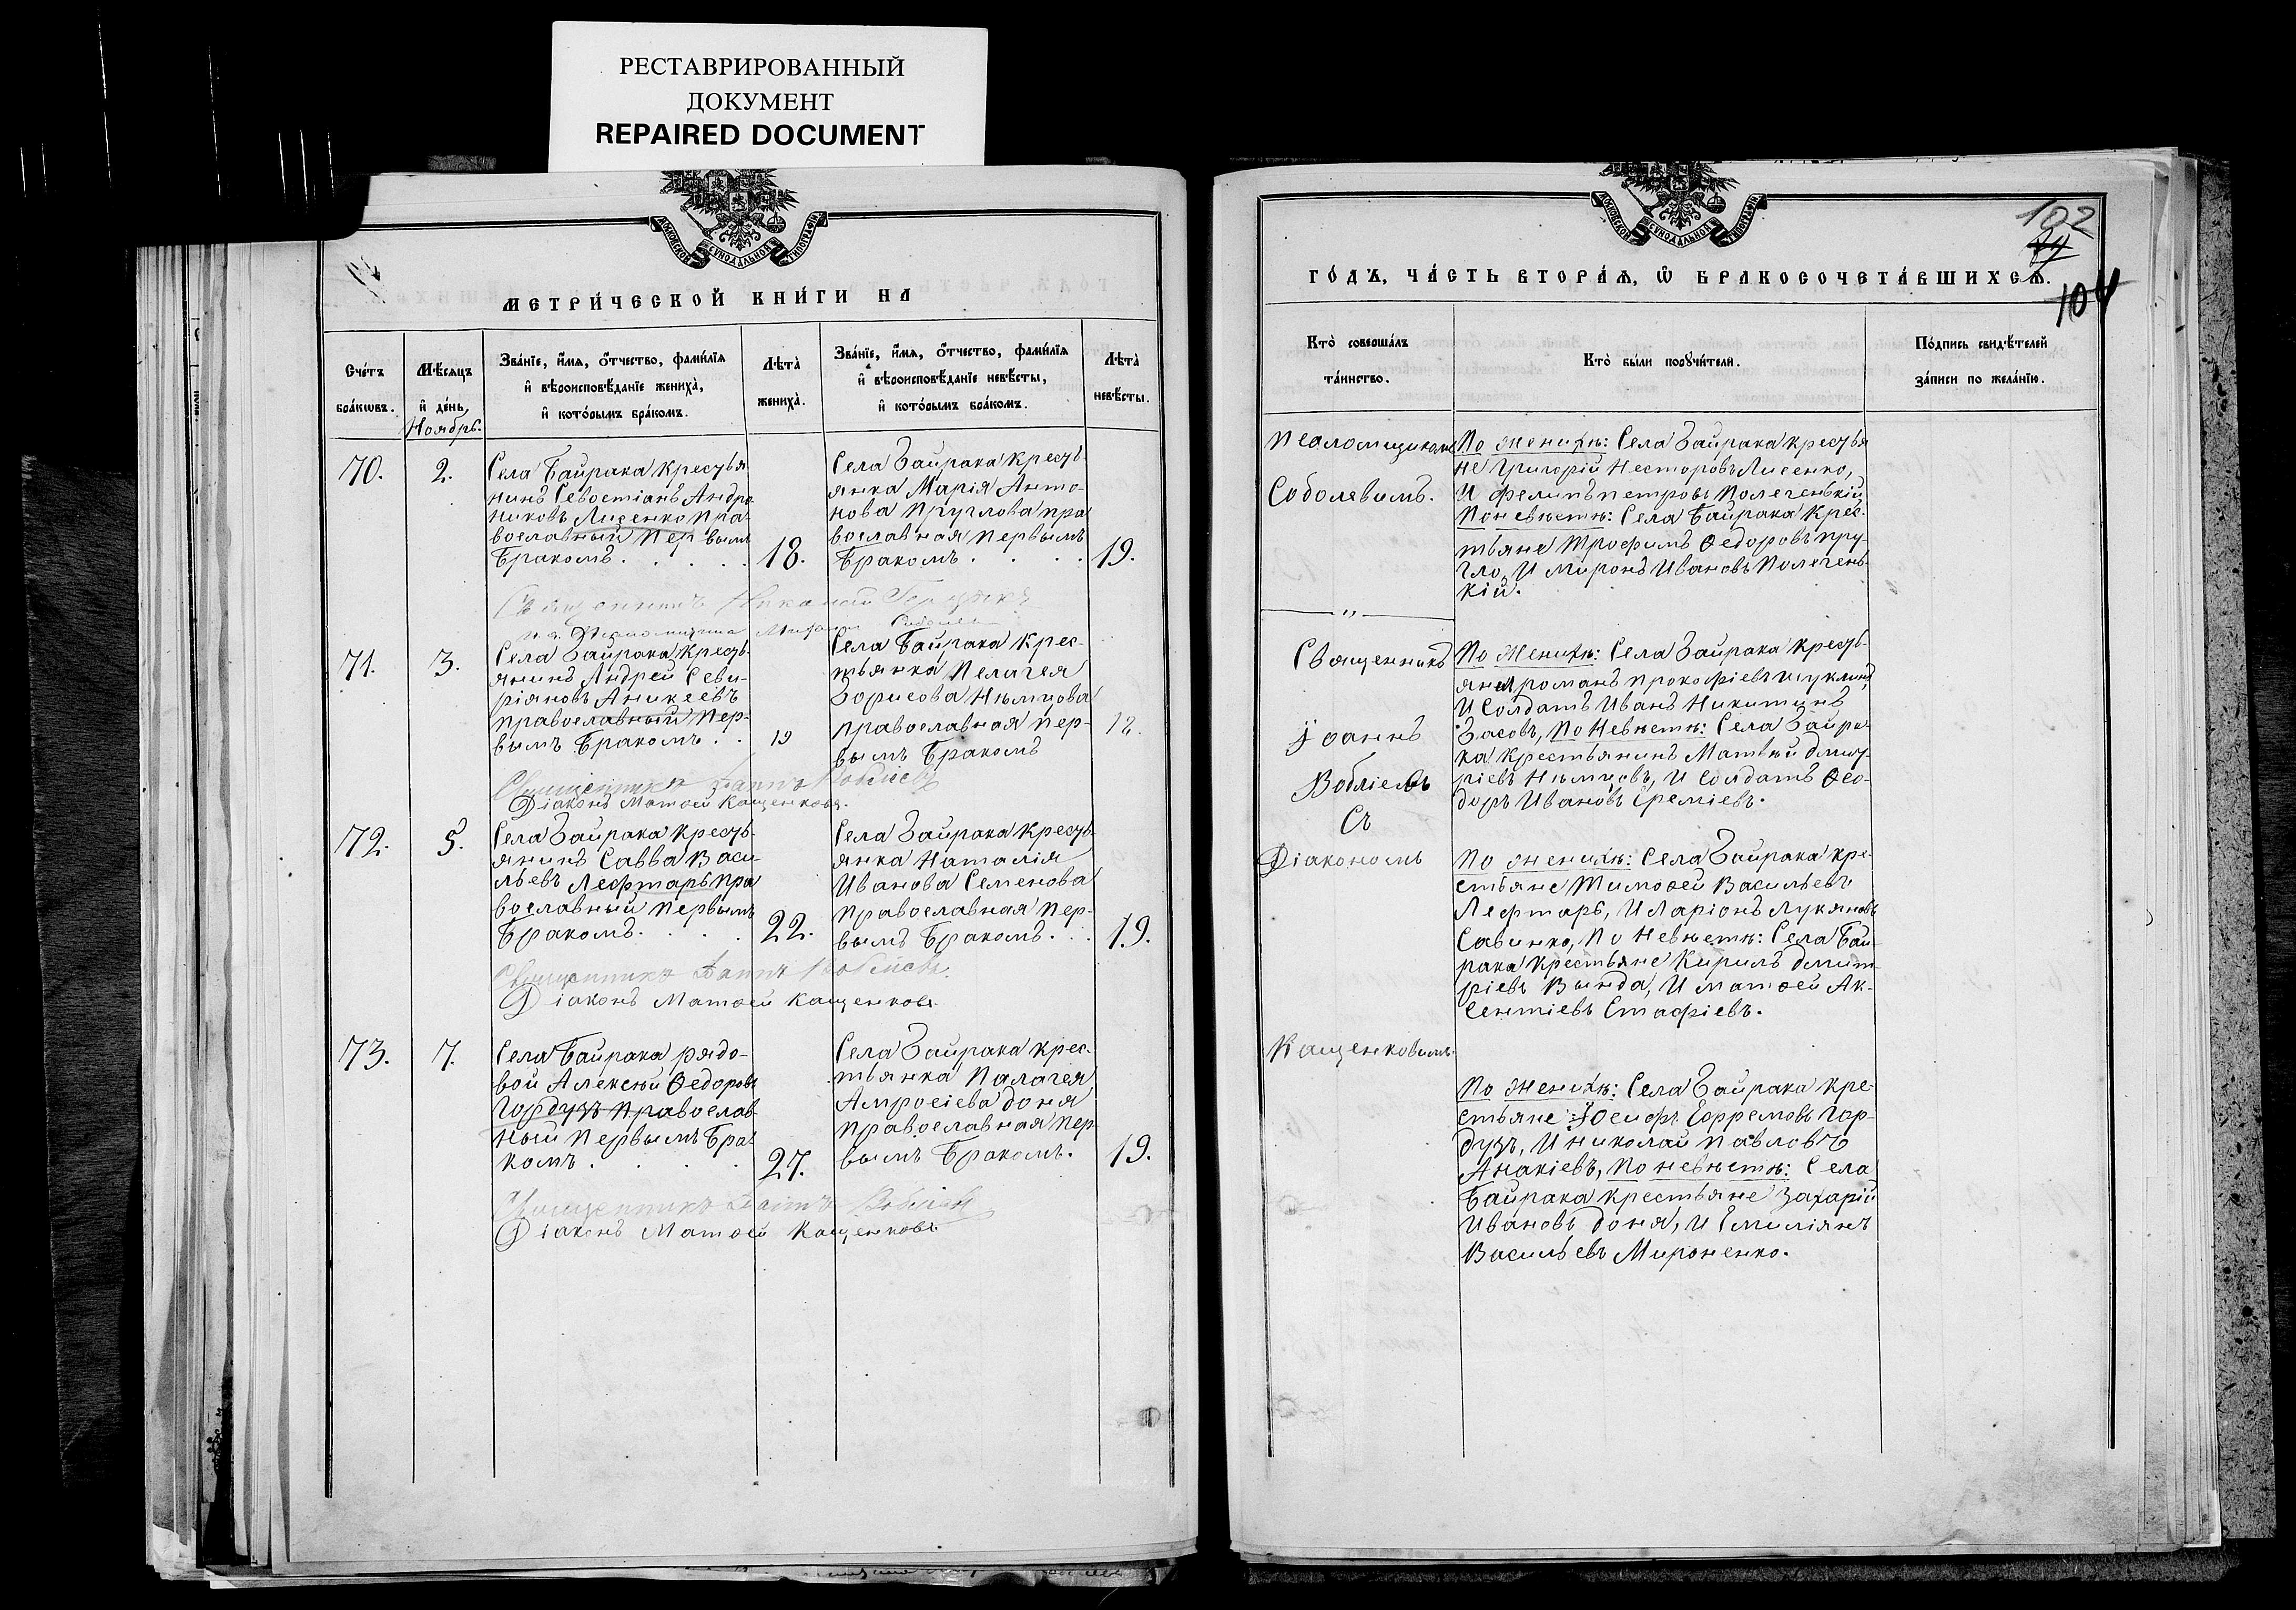 РЕСТАВРИРОВАННЫЙ
ДОКУМЕНТ
REPAIRED DOCUMENT
МОСКОВСКОЙ СѴНОДАЛЬНОЙ ТИПОГРАФІИ
МЕТРИ́ЧЕСКОЙ КНИ́ГИ НА
Сче́тъ
бра́кωвъ.
Мѣ́сяцъ
и҆ де́нь,
Ноябрь.
Зва́нїе, и҆́мѧ, ѻ҆́тчество, фами́лїѧ
и҆ вѣроисповѣ́данїе жениха̀,
и҆ кото́рымъ бра́комъ.
Лѣта̀
жениха̀.
Зва́нїе, и҆́мѧ, ѻ҆́тчество, фами́лїѧ
и҆ вѣроисповѣ́данїе невѣ́сты,
и҆ кото́рымъ бра́комъ.
Лѣта̀
невѣ́сты.
70.
2.
Села Байрака Крестья
нинъ Севостіанъ Андро
никовъ Лисенко пра-
вославный первымъ
бракомъ.
18.
Села Байрака кресть-
янка Марія Анто-
нова Пруглова пра
вославная первымъ
бракомъ.
19.
Священникъ
71.
3.
Села Байрака Кресть-
янинъ Андрей Севи-
ріяновъ Аникеевъ
православный пер-
вымъ бракомъ.
19
Села Байрака Крес-
тьянка Пелагея
Борисова Нѣмцова
православная пер-
вымъ бракомъ
18.
Священникъ
Діаконъ Матѳей Кащенковъ.
72.
5.
Села Байрака Кресть-
янинъ Савва Васи-
льевъ Лефтарь пра
вославный первымъ
бракомъ.
22.
Села Байрака Кресть-
янка Наталія
Иванова Семенова
православная пер-
вымъ бракомъ.
19.
Священникъ
Діаконъ Матѳей Кащенковъ
73.
7.
Села Байрака рядо-
вой Алексѣй Ѳедоровъ
Гордузъ православ-
ный первымъ бра
комъ.
27.
Села Байрака крес-
тьянка Палагея
Амросіева Доня
православная пер
вымъ бракомъ.
19.
Священникъ
Діаконъ Матѳей Кащенковъ
МОСКОВСКОЙ СѴНОДАЛЬНОЙ ТИПОГРАФІИ
102
104
ГО́ДЪ, ЧА́СТЬ ВТОРА́Ѧ, Ѡ҆ БРАКОСОЧЕТА́ВШИХСѦ.
Кто̀ соверша́лъ
та́инство.
Кто̀ бы́ли порꙋчи́тели.
По́дпись свидѣ́телей
за́писи по жела́нїю.
Псаломщикомъ
Соболевымъ.
По женихѣ: Села Байрака крестья
не Григорій Несторовъ Лисенко,
И Филипъ Петровъ Полегенькій
По невѣстѣ: Села Байрака Крес-
тьяне Трофимъ Ѳедоровъ Пру-
гло, И Миронъ Ивановъ Полегень-
кій.
Священникъ
Іоаннъ
Вобліевъ
Съ
Діакономъ
Кащенковымъ
По женихѣ: Села Байрака Кресть-
янин Романъ Прокофіевъ Шуклинъ,
И Солдатъ Иванъ Никитинъ
Басовъ, По Невѣстѣ: Села Байра-
ка крестьянинъ Матвѣй Дмит-
ріевъ Нѣмцовъ, И Солдатъ Ѳео-
доръ Ивановъ Ереміевъ.
По женихѣ: Села Байрака кре-
стьяне Тимоѳей Васильевъ
Лефтарь, Иларіонъ Лукяновъ
Савинко, По Невѣстѣ: Села Бай-
рака Крестьяне Кирилъ Дмит-
ріевъ Вында, И Матѳей Ак-
сентіевъ Стафіевъ.
По женихѣ: Села Байрака кре-
стьяне Іосифъ Ефремовъ Гор-
дузъ, И Николай Павловъ
Анакіевъ, По невѣстѣ: Села
Байрака крестьяне Захарій
Ивановъ Доня, И Емиліянъ
Васильевъ Мироненко.